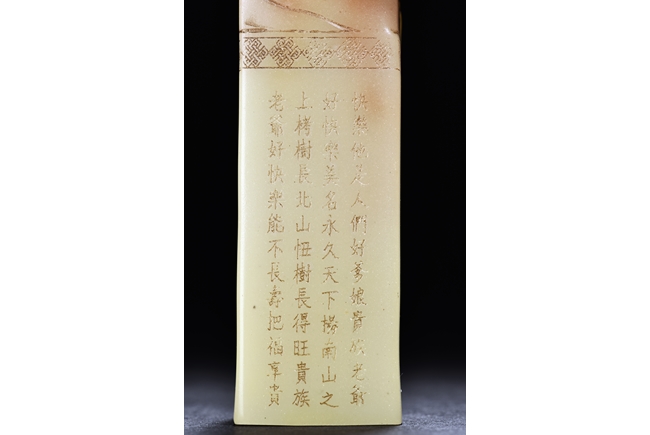 快樂他是人們好爹娘貴族老爺
好快樂美名永久天下揚南山之
上栲樹長北山杻樹長得旺貴族
老爺好快樂能不長壽把福享貴